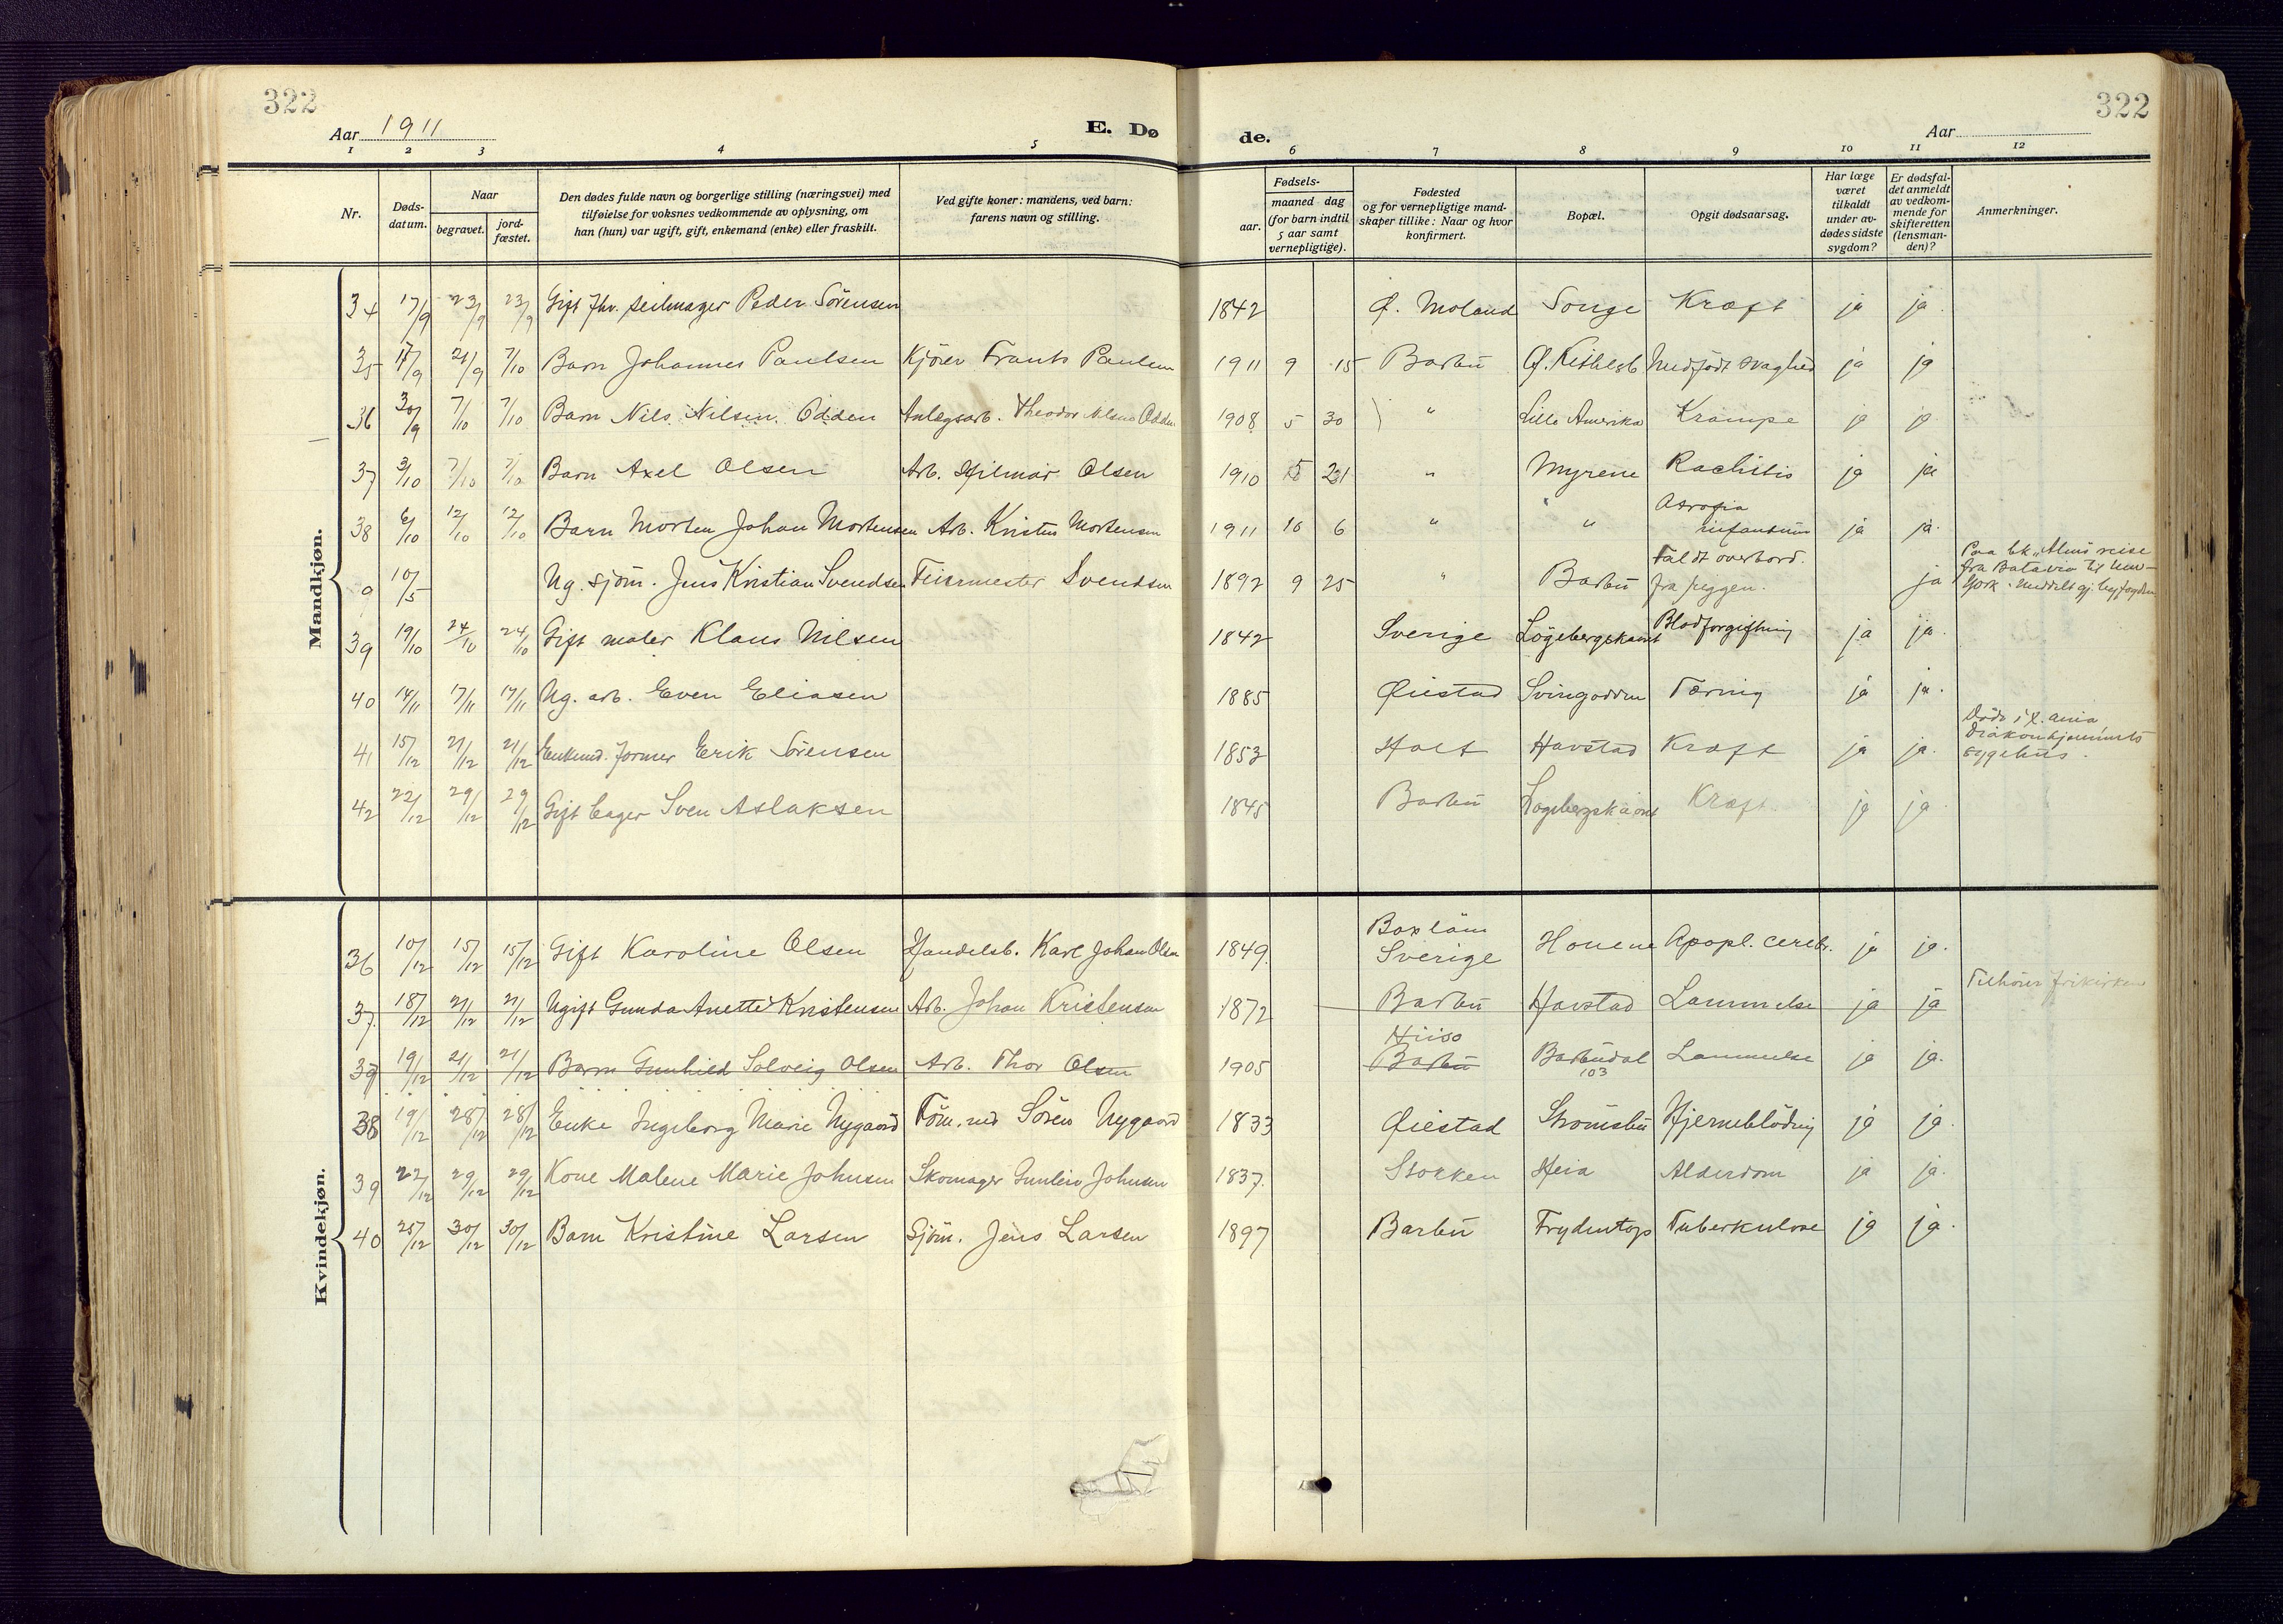 322
322
Aar 1911
E. Dø
de.
Aar
1 2 3 4 5 6 7 8 9 10 11 12
Nr.
Døds-
datum.
Naar
begravet.
jord-
fæstet.
Den dødes fulde navn og borgerlige stilling (næringsvei) med
tilføielse for voksnes vedkommende av oplysning, om
han (hun) var ugift, gift, enkemand (enke) eller fraskilt.
Ved gifte koner: mandens, ved barn:
farens navn og stilling.
Fødsels-
aar.
maaned dag
(for barn indtil
5 aar samt
vernepligtige).
Fødested
og for vernepligtige mand-
skaper tillike: Naar og hvor
konfirmert.
Bopæl.
Opgit dødsaarsag.
Har læge
været
tilkaldt
under av-
dødes sidste
sygdom?
Er dødsfal-
det anmeldt
av vedkom-
mende for
skifteretten
(lensman-
den)?
Anmerkninger.
Mandkjøn.
34 17/9 23/9 23/9 Gift fhv. seilmager Peder Sörensen 1842 Ø. Moland Songe Kræft ja ja.
35 17/9 21/9 7/10 Barn Johannes Paulsen Kjörer Frants Paulsen 1911 9 15 Barbu Medfödt svaghed ja ja
36 30/9 7/10 7/10 Barn Nils Nilsen Odden Anlægsarb. Theodor Nilsen Odden 1908 5 30 " Lille Amerika Krampe ja ja
37 3/10 7/10 7/10 Barn Axel Olsen Arb. Hilmar Olsen 1910 5 21 " Myrene Rachitis ja ja
38 6/10 12/10 12/10 Barn Morten Johan Mortensen Arb. Kristen Mortensen 1911 10 6 " " Atrofia infantum ja ja.
9 10/5 Ug. sjöm. Jens Kristian Svendsen Feiermester Svendsen 1892 9 25 " Barbu Faldt overbord. fra riggen. ja Paa bk "Alms reise
fra Batavia til New-
York. Meddelt gj. byfogden
39 19/10 24/10 24/10 Gift maler Klaus Nilsen 1842 Sverige Lögebergskaaret Blodforgiftning ja ja.
40 14/11 17/11 17/11 Ug. arb. Even Eliasen 1885 Øiestad Svinodden Tæring ja ja.
41 15/12 21/12 21/12 Enkemd. former Erik Sörensen 1853 Holt Havstad Kræft ja ja. Döde i
Diakonhjemmets
sygehus.
42 22/12 29/12 29/12 Gift bager Sven Aslaksen 1845 Barbu Lögebergskaaret Kræft ja ja
Kvindekjøn.
36 10/12 15/12 15/12 Gift Karoline Olsen Handelsb. Karl Johan Olsen 1849. Sverige Houene Apopl. cerebr. ja ja.
37. 18/12 21/12 21/12 Ugift Gunda Anette Kristensen Arb. Johan Kristensen 1872 Barbu Havstad Lammelse ja ja Tilhörer frikirken
39 19/12 21/12 21/12 Barn Gunhild Solveig Olsen Arb. Thor Olsen 1905 Hisö Barbu Barbudal 103 Lammelse ja ja.
38 19/12 28/12 28/12 Enke Ingeborg Marie Nygaard Töm.md Sören Nygaard 1833 Øiestad Strömsbu Hjerneblödning ja ja.
39 22/12 29/12 29/12 Kone Malene Marie Johnsen Skomager Gunleiv Johnsen 1837. Stokken Heia Alderdom ja ja.
40 25/12 30/12 30/12 Barn Kristine Larsen Sjöm. Jens Larsen 1897 Barbu Frydentop Tuberkulose ja ja.